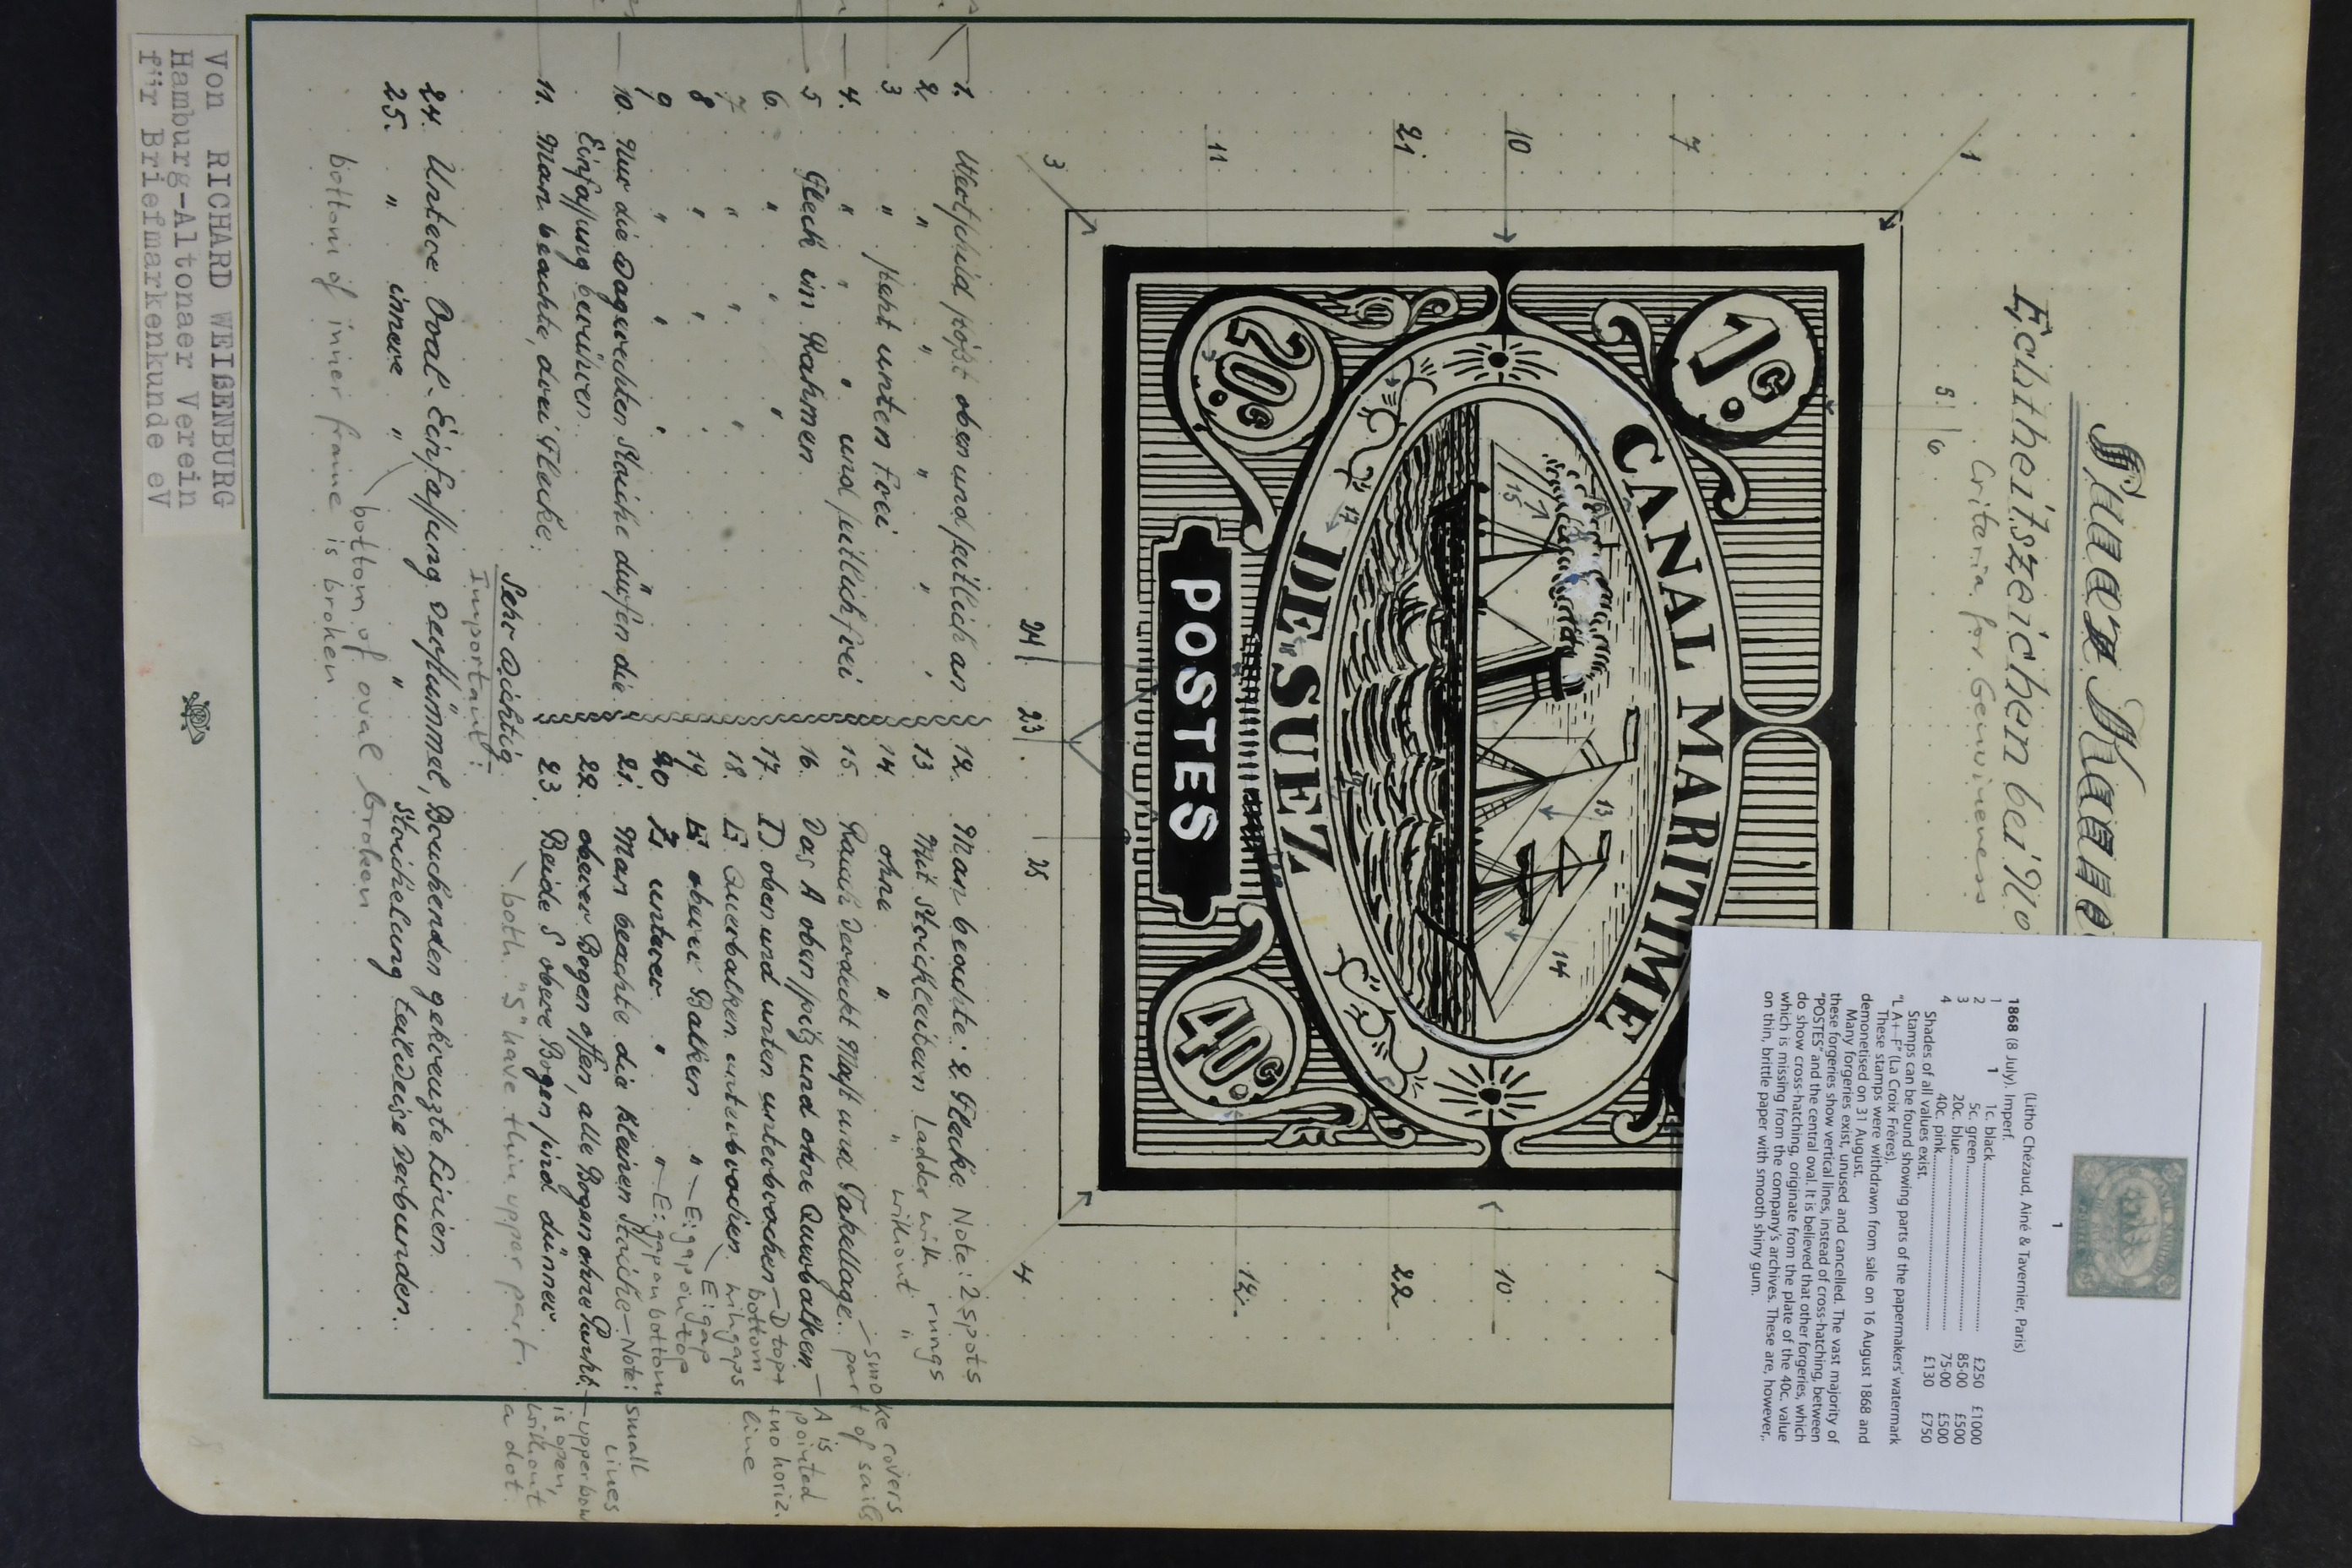 Suez Kanal
Echtheitszeichen bei No
Criteria for Genuineness
(Litho Chézaud, Ainé & Tavernier, Paris)
1868 (8 July). Imperf.
1 1 1c. black £250 £1000
2 5c. green 85·00 £500
3 20c. blue 75·00 £500
4 40c. pink £130 £750
Shades of all values exist.
Stamps can be found showing parts of the papermakers' watermark
"L A+-F" (La Croix Frères).
These stamps were withdrawn from sale on 16 August 1868 and
demonetised on 31 August.
Many forgeries exist, unused and cancelled. The vast majority of
these forgeries show vertical lines, instead of cross-hatching, between
"POSTES" and the central oval. It is believed that other forgeries, which
do show cross-hatching, originate from the plate of the 40c. value
which is missing from the company's archives. These are, however,
on thin, brittle paper with smooth shiny gum.
1
1
5. 6
7
10
21
11
3
1c.
20c.
40c.
CANAL MARITIME
DE SUEZ
POSTES
13
14
15
17
10
22
12
4
24
23
25
1. Wertschild stößt oben und seitlich an
2 " " " " "
3 " steht unten frei
4. " " " und seitlich frei
5 Fleck im Rahmen
6. " " "
7 " " "
8 " " "
9 " " "
10. Nur die Waagerechten Striche dürfen die
Einfassung berühren.
11. Man beachte, drei Flecke.
12. Man beachte: 2 Flecke. Note: 2 spots
13. Mit Strickleitern Ladder with rungs
14. ohne " " without "
15. Rauch verdeckt Mast und Takellage. – smoke covers part of sails
16. Das A oben spitz und ohne Querbalken – A is pointed + no horiz. line
17. D oben und unten unterbrochen – D top + bottom
18. E Querbalken unterbrochen. E: gap
19. E oberer Balken " – E: gap on top
20 Z unterer " " – E: gap on bottom
21. Man beachte die kleinen Striche – Note: small lines
22. oberer Bogen offen, alle Bogen ohne Punkt. – upper bow is open, without a dot.
23. Beide S obere Bogen sind dünner.
both "S" have thin upper part.
Sehr wichtig
Important:
24. Untere Oval-Einfassung verstümmelt, Bruchenden gekreuzte Linien.
25. " innere " " Strichelung teilweise verbunden.
bottom of oval broken
bottom of inner frame is broken
Von RICHARD WEIßENBURG
Hamburg-Altonaer Verein
für Briefmarkenkunde eV